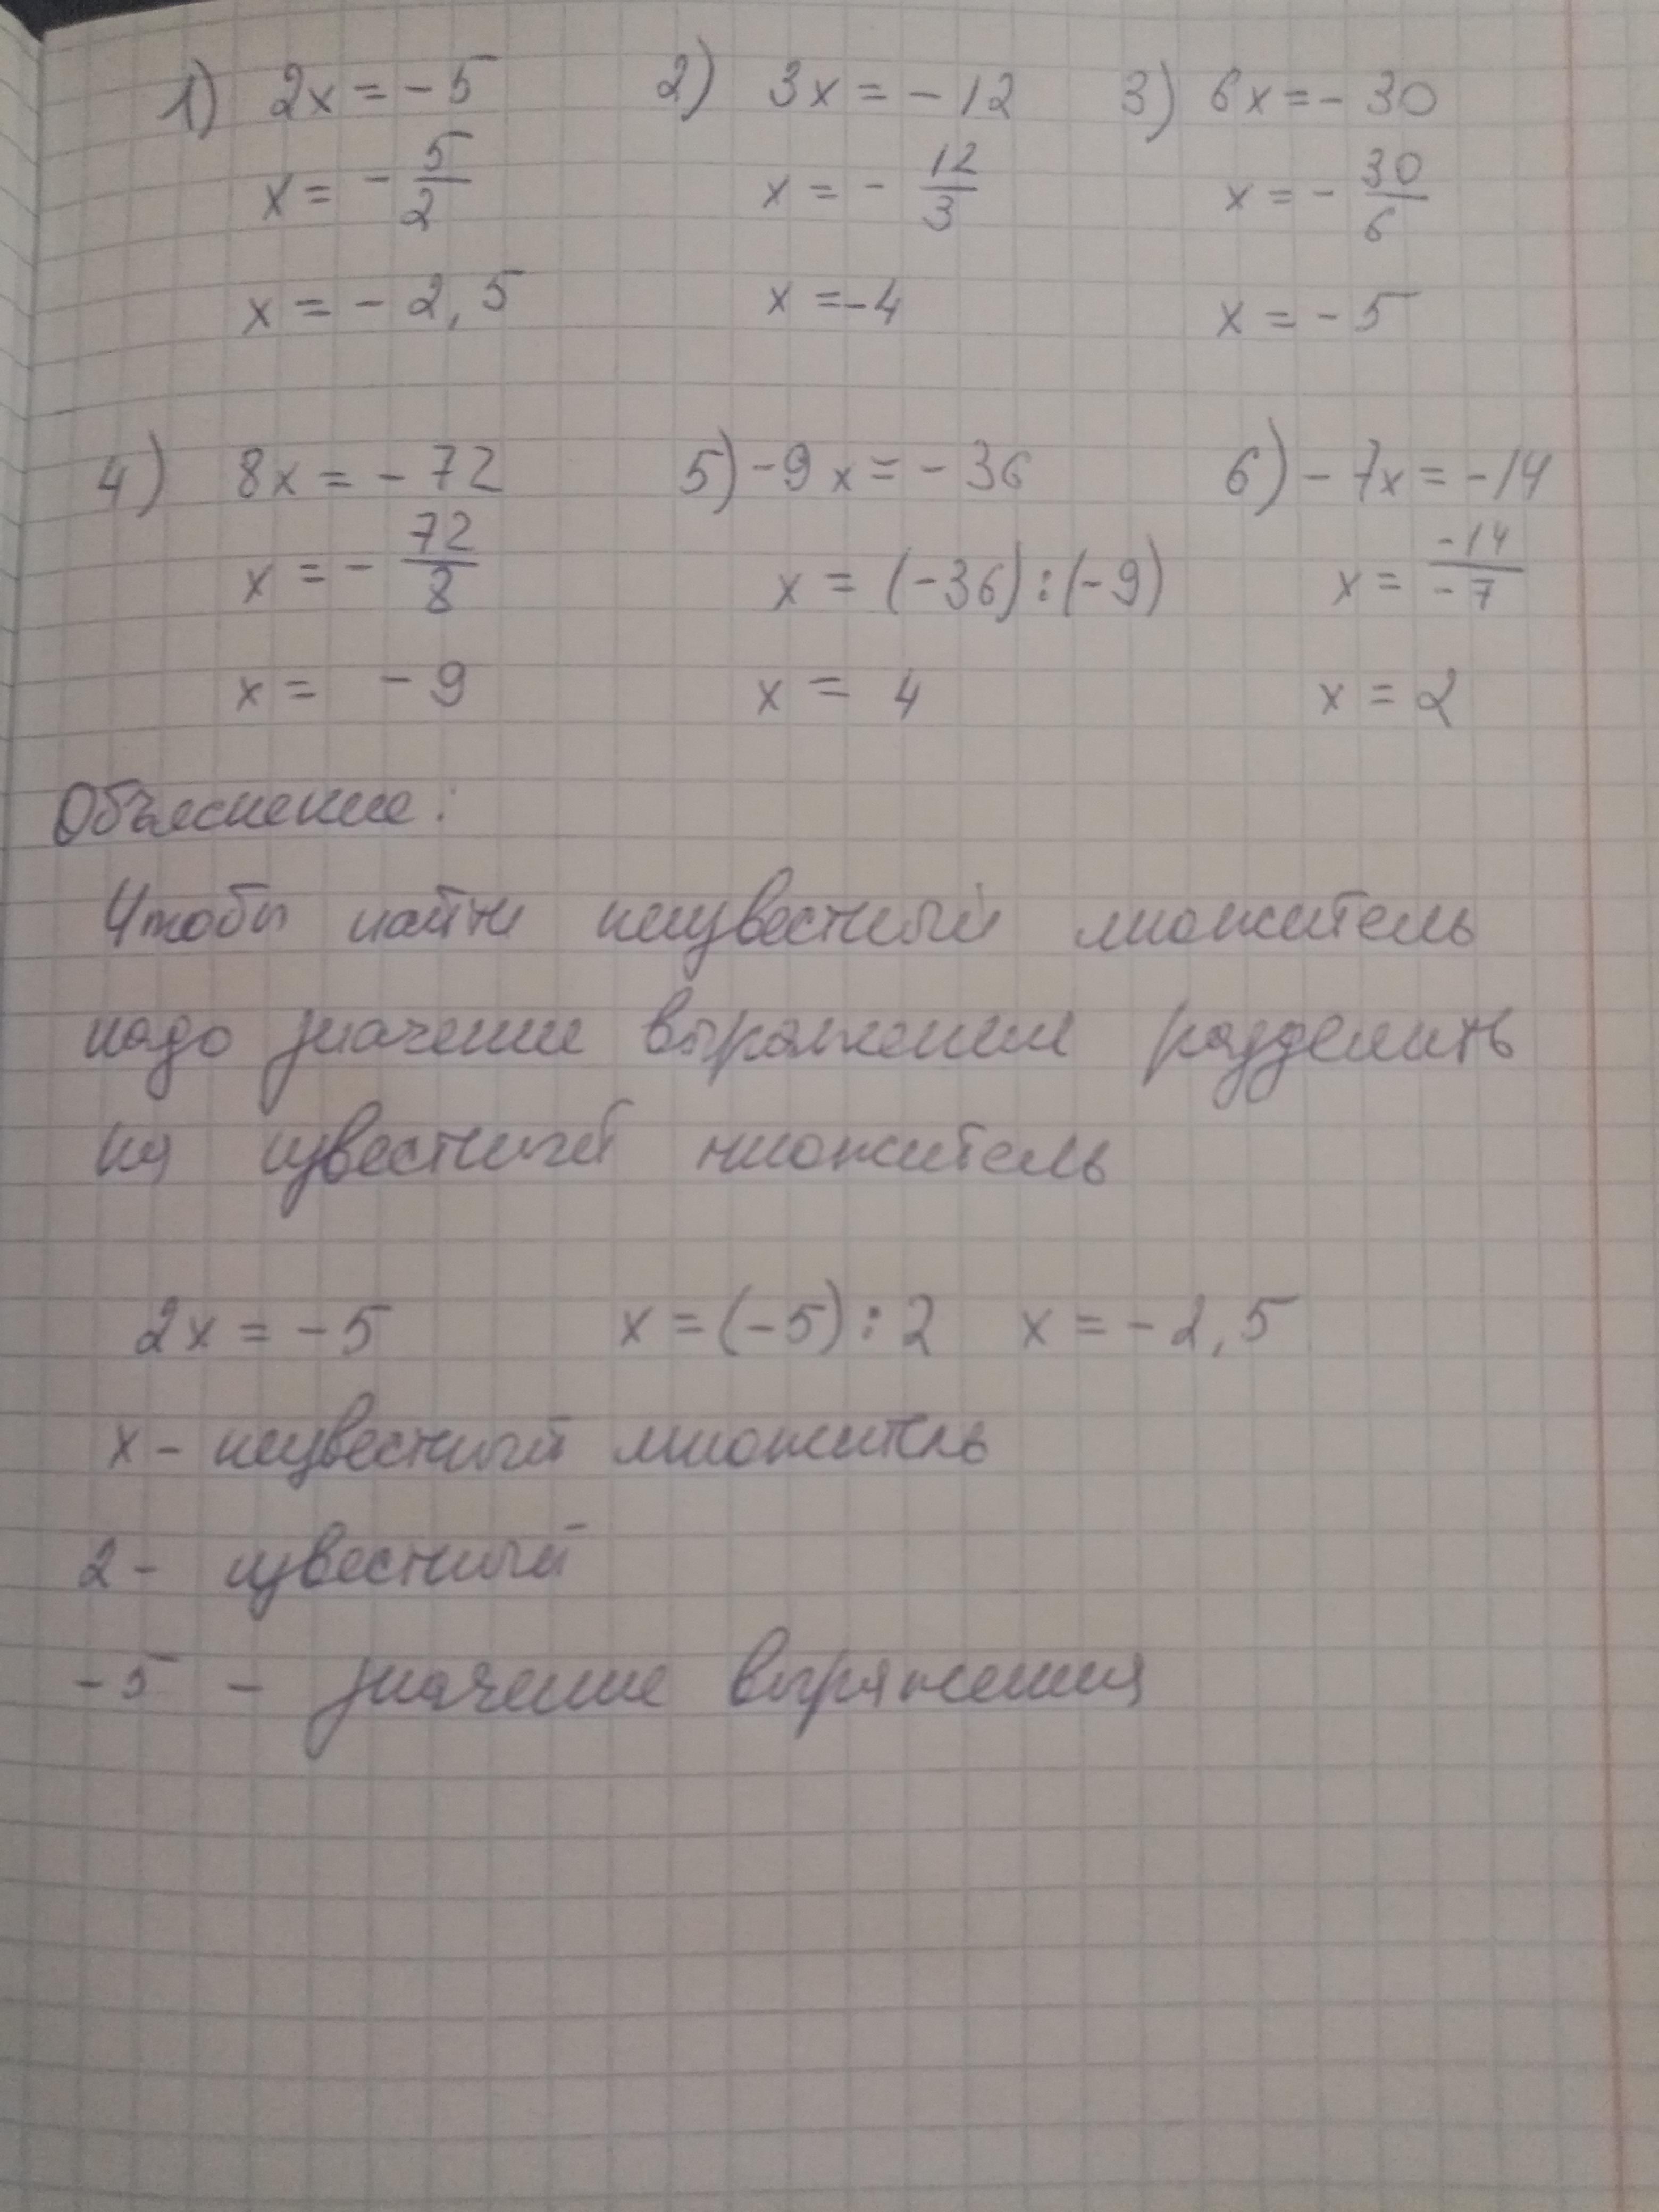 1) 2x = -5 2) 3x = -12 3) 6x = -30
x = - 5/2 x = - 12/3 x = - 30/6
x = -2,5 x = -4 x = -5
4) 8x = -72 5) -9x = -36 6) -7x = -14
x = - 72/8 x = (-36) : (-9) x = -14/-7
x = -9 x = 4 x = 2
Объяснение:
Чтобы найти неизвестный множитель
надо значение выражения разделить
на известный множитель
2x = -5 x = (-5) : 2 x = -2,5
x - неизвестный множитель
2 - известный
-5 - значение выражения